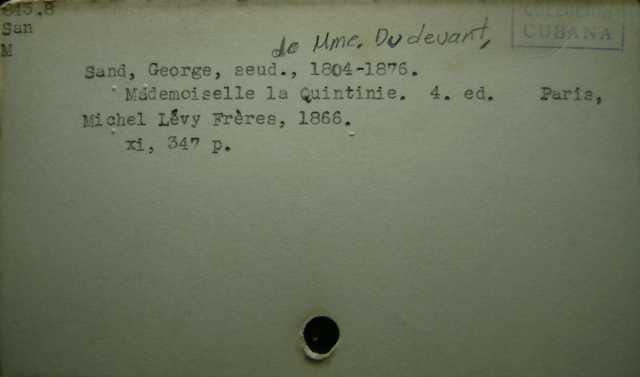 843.8
San
M
COLECCION
CUBANA
de Mme. Dudevant,
Sand, George, seud., 1804-1876.
Mademoiselle la Quintinie. 4. ed. Paris,
Michel Lévy Frères, 1866.
xi, 347 p.